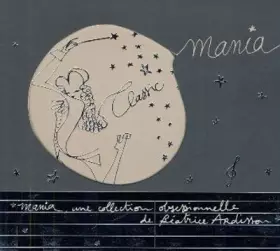 mania
Classic
mania, une collection obsessionnelle
de Béatrice Ardisson